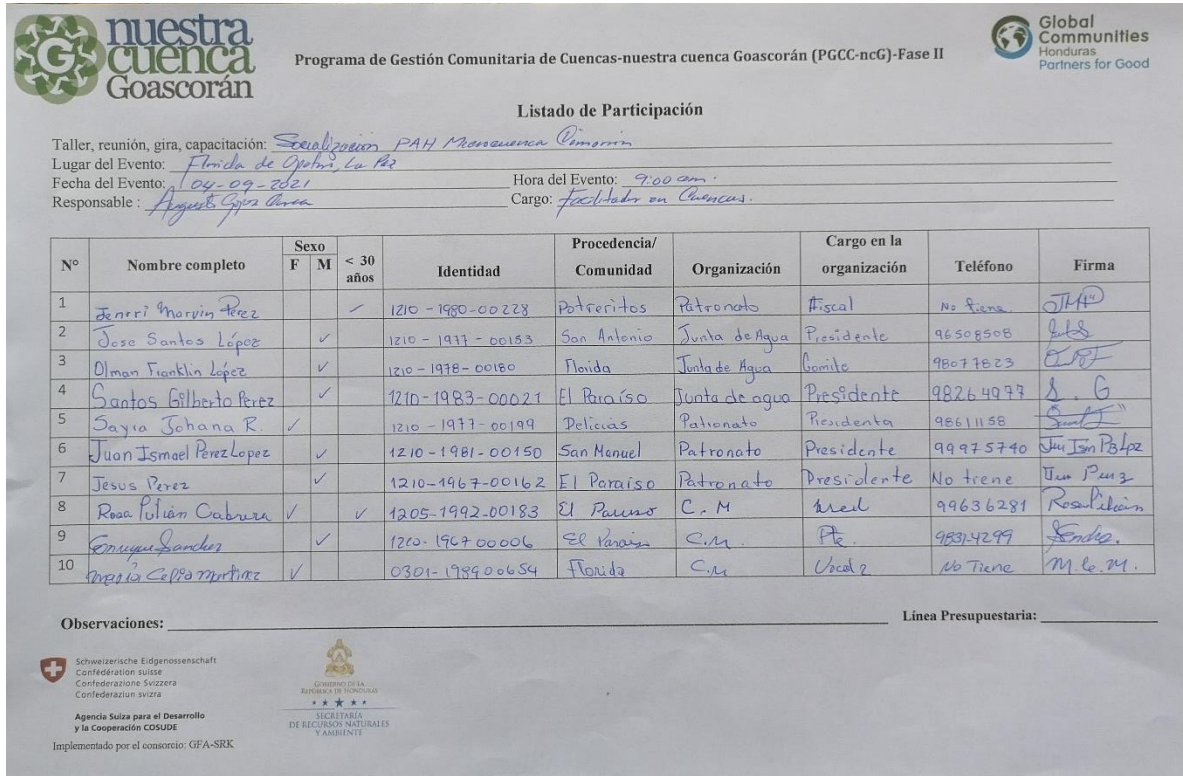 nuestra
cuenca
Goascorán
Global
Communities
Honduras
Partners for Good
Programa de Gestión Comunitaria de Cuencas-nuestra cuenca Goascorán (PGCC-ncG)-Fase II
Listado de Participación
Taller, reunión, gira, capacitación: Socialización PAH Microcuenca
Lugar del Evento: Florida de Opatoro, La Paz
Fecha del Evento: 04-09-2021 Hora del Evento: 9:00 am.
Responsable : Cargo: Facilitador en Cuencas.
N° Nombre completo Sexo F M < 30 años Identidad Procedencia/ Comunidad Organización Cargo en la organización Teléfono Firma
1 Jenrri Marvin Perez ✓ 1210-1980-00228 Potreritos Patronato Fiscal No tiene
2 Jose Santos López ✓ 1210-1977-00153 San Antonio Junta de Agua Presidente 96508508
3 Olman Franklin López ✓ 1210-1978-00180 Florida Junta de Agua Comite 98077823
4 Santos Gilberto Perez ✓ 1210-1983-00021 El Paraíso Junta de agua Presidente 98264977 S. G
5 Sayra Johana R. ✓ 1210-1977-00199 Delicias Patronato Presidenta 98611158
6 Juan Ismael Perez Lopez ✓ 1210-1981-00150 San Manuel Patronato Presidente 99975740
7 Jesus Perez ✓ 1210-1967-00162 El Paraiso Patronato Presidente No tiene
8 Rosa Cabrera ✓ ✓ 1205-1992-00183 El C.M 99636281
9 Sanchez ✓ 1210-1967 00006 El Paraiso C.M. Pte. 9837-4299
10 Martinez ✓ 0301-198900654 Florida C.M Vocal 2 No Tiene
Observaciones: Línea Presupuestaria:
Schweizerische Eidgenossenschaft
Confédération suisse
Confederazione Svizzera
Confederaziun svizra
Agencia Suiza para el Desarrollo
y la Cooperación COSUDE
Implementado por el consorcio: GFA-SRK
GOBIERNO DE LA
REPÚBLICA DE HONDURAS
SECRETARÍA
DE RECURSOS NATURALES
Y AMBIENTE